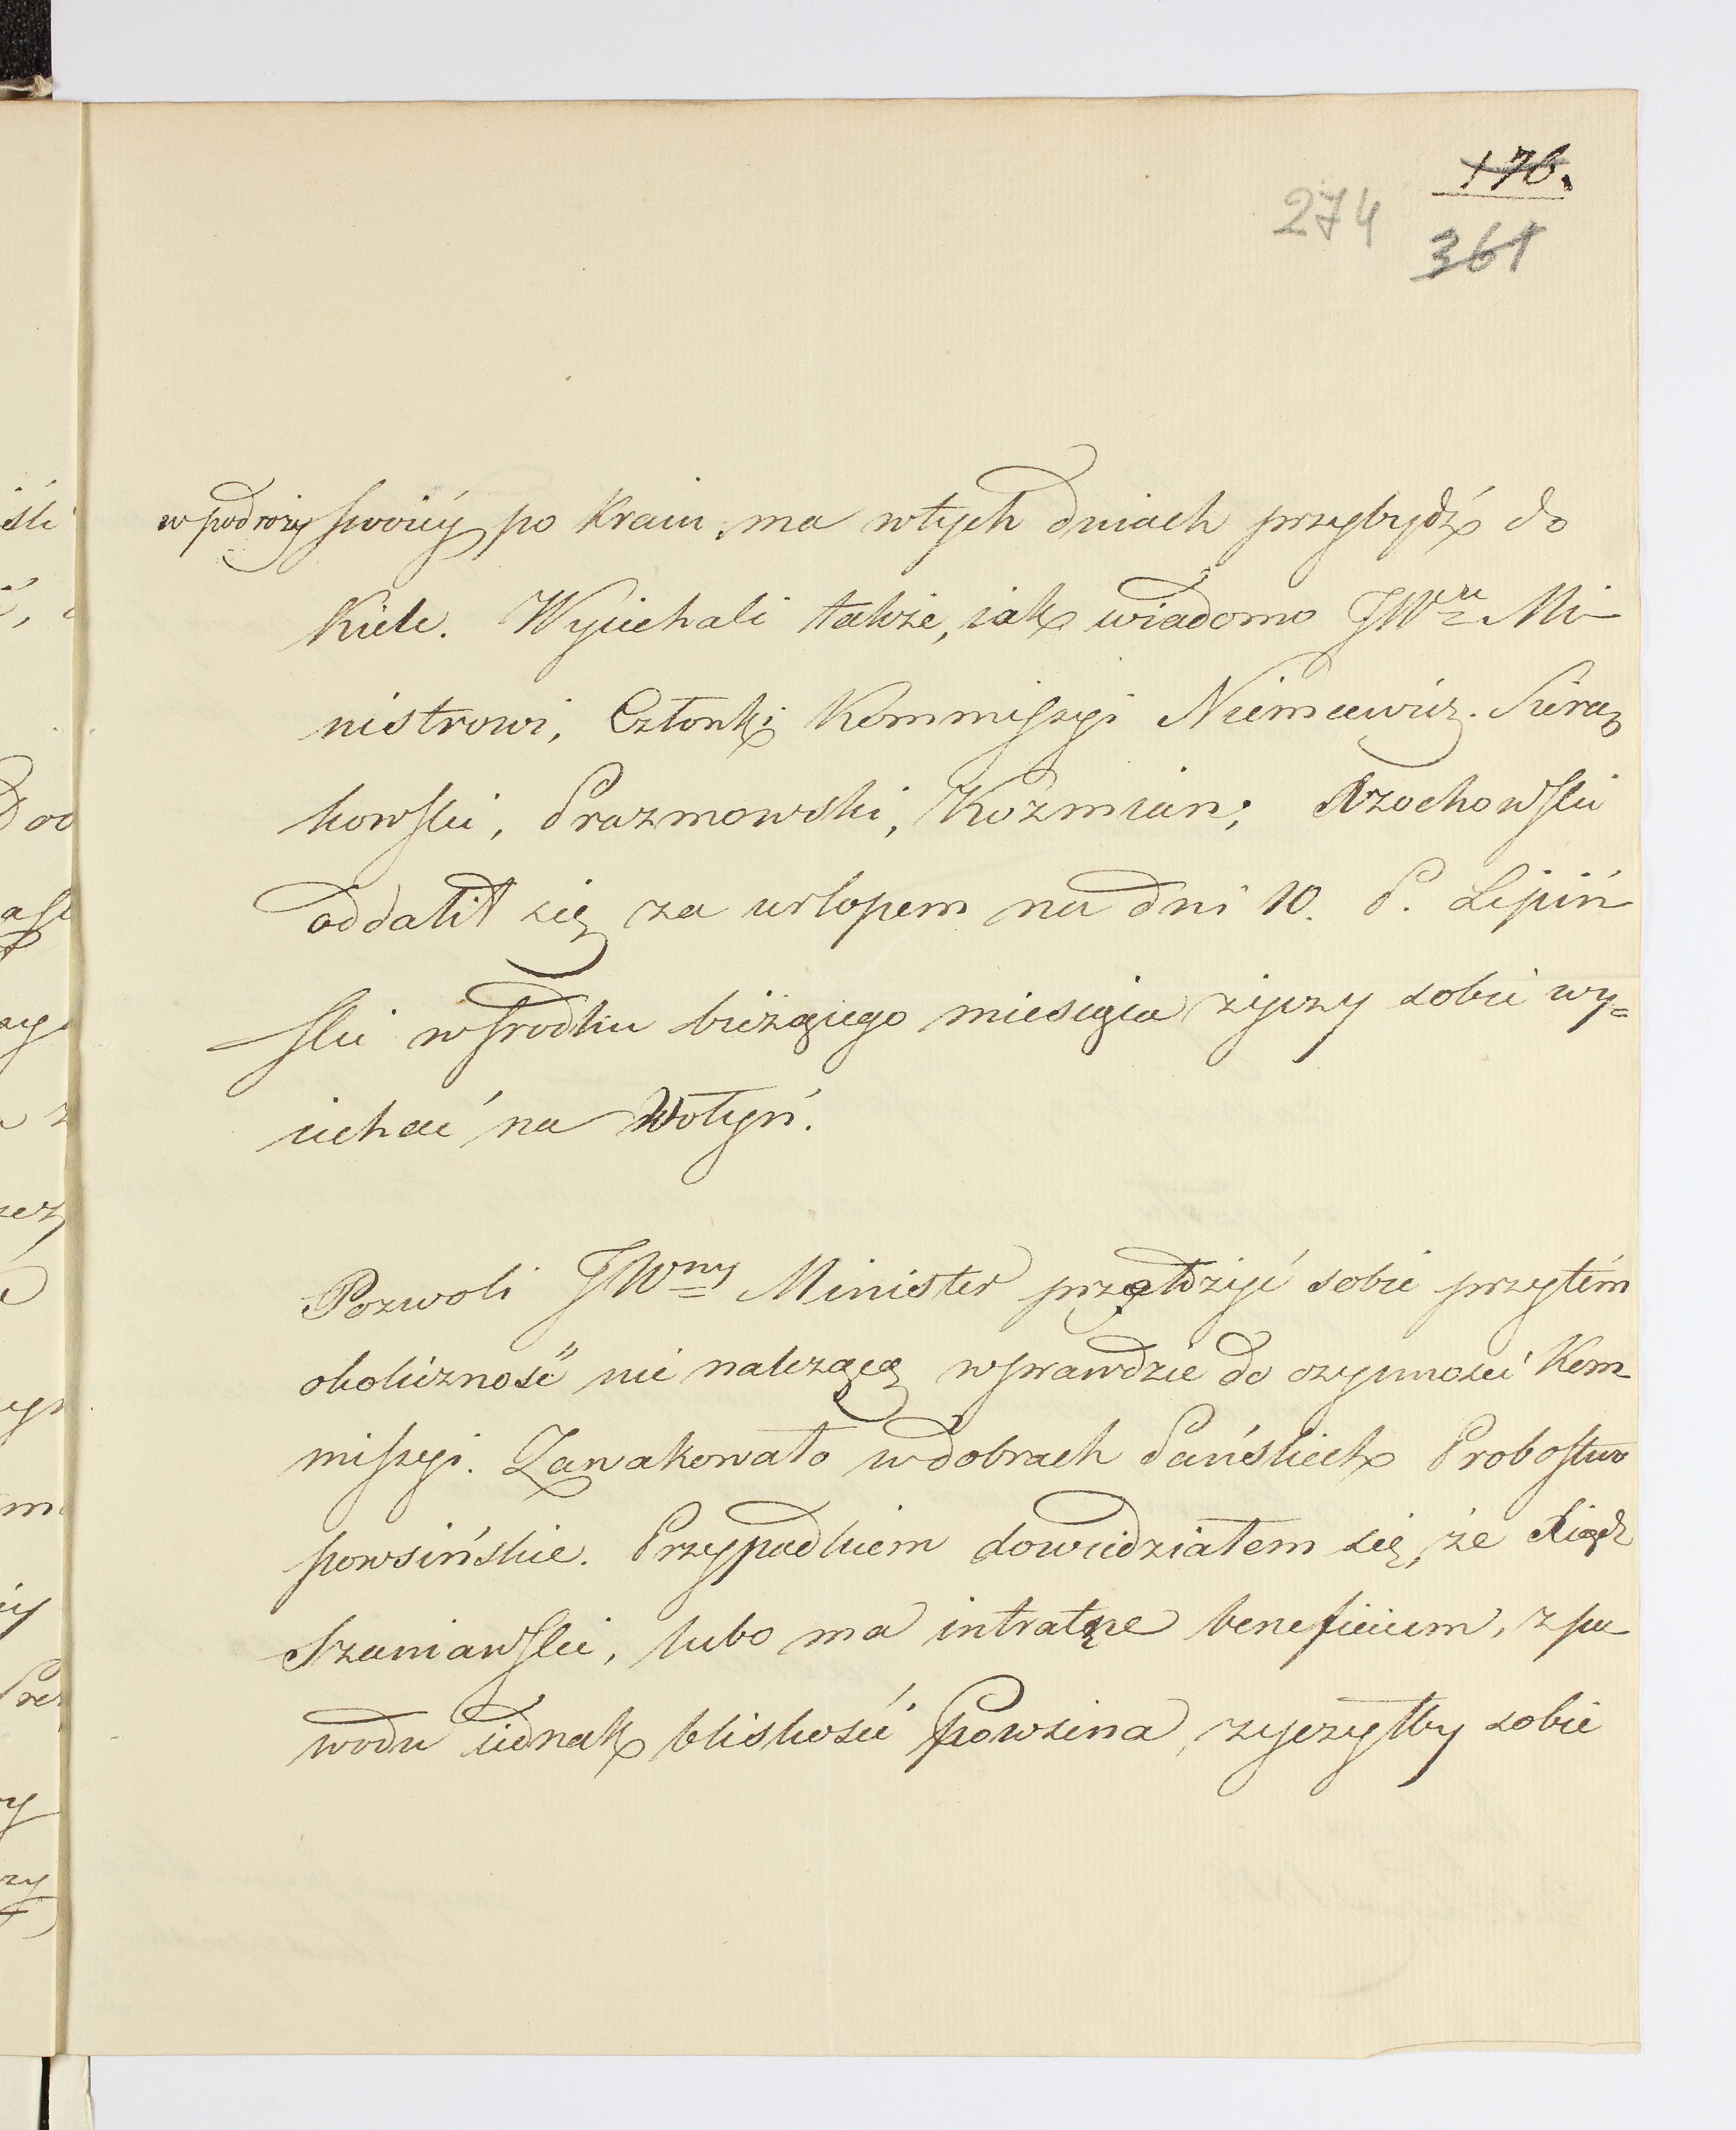 176.
274 361
w podroży swoiéy po Kraiu, ma wtych dniach przybydź do
Kielc. Wyiechali także, iak wiadomo JWu Mi-
nistrowi, Członki Kommissyi Niemcewicz. Siera-
kowski, Prazmowski, Koźmian; Rzochowski
oddalił się za urlopem na dni 10. P. Lipiń-
ski wsrodku bieżącego miesiąca życzy sobie wy=
iechać na Wołyń.
Pozwoli JWny Minister przełożyć sobie przytém
okoliczność nie należącą wprawdzie do czynności Kom-
missyi. Zawakowało wdobrach Pańskich Probostwo
powsińskie. Przypadkiem dowiedziałem się, że Xiądz
Szaniawski, lubo ma intratne beneficium, zpo-
wodu iednak bliskości Powsina, życzyłby sobie